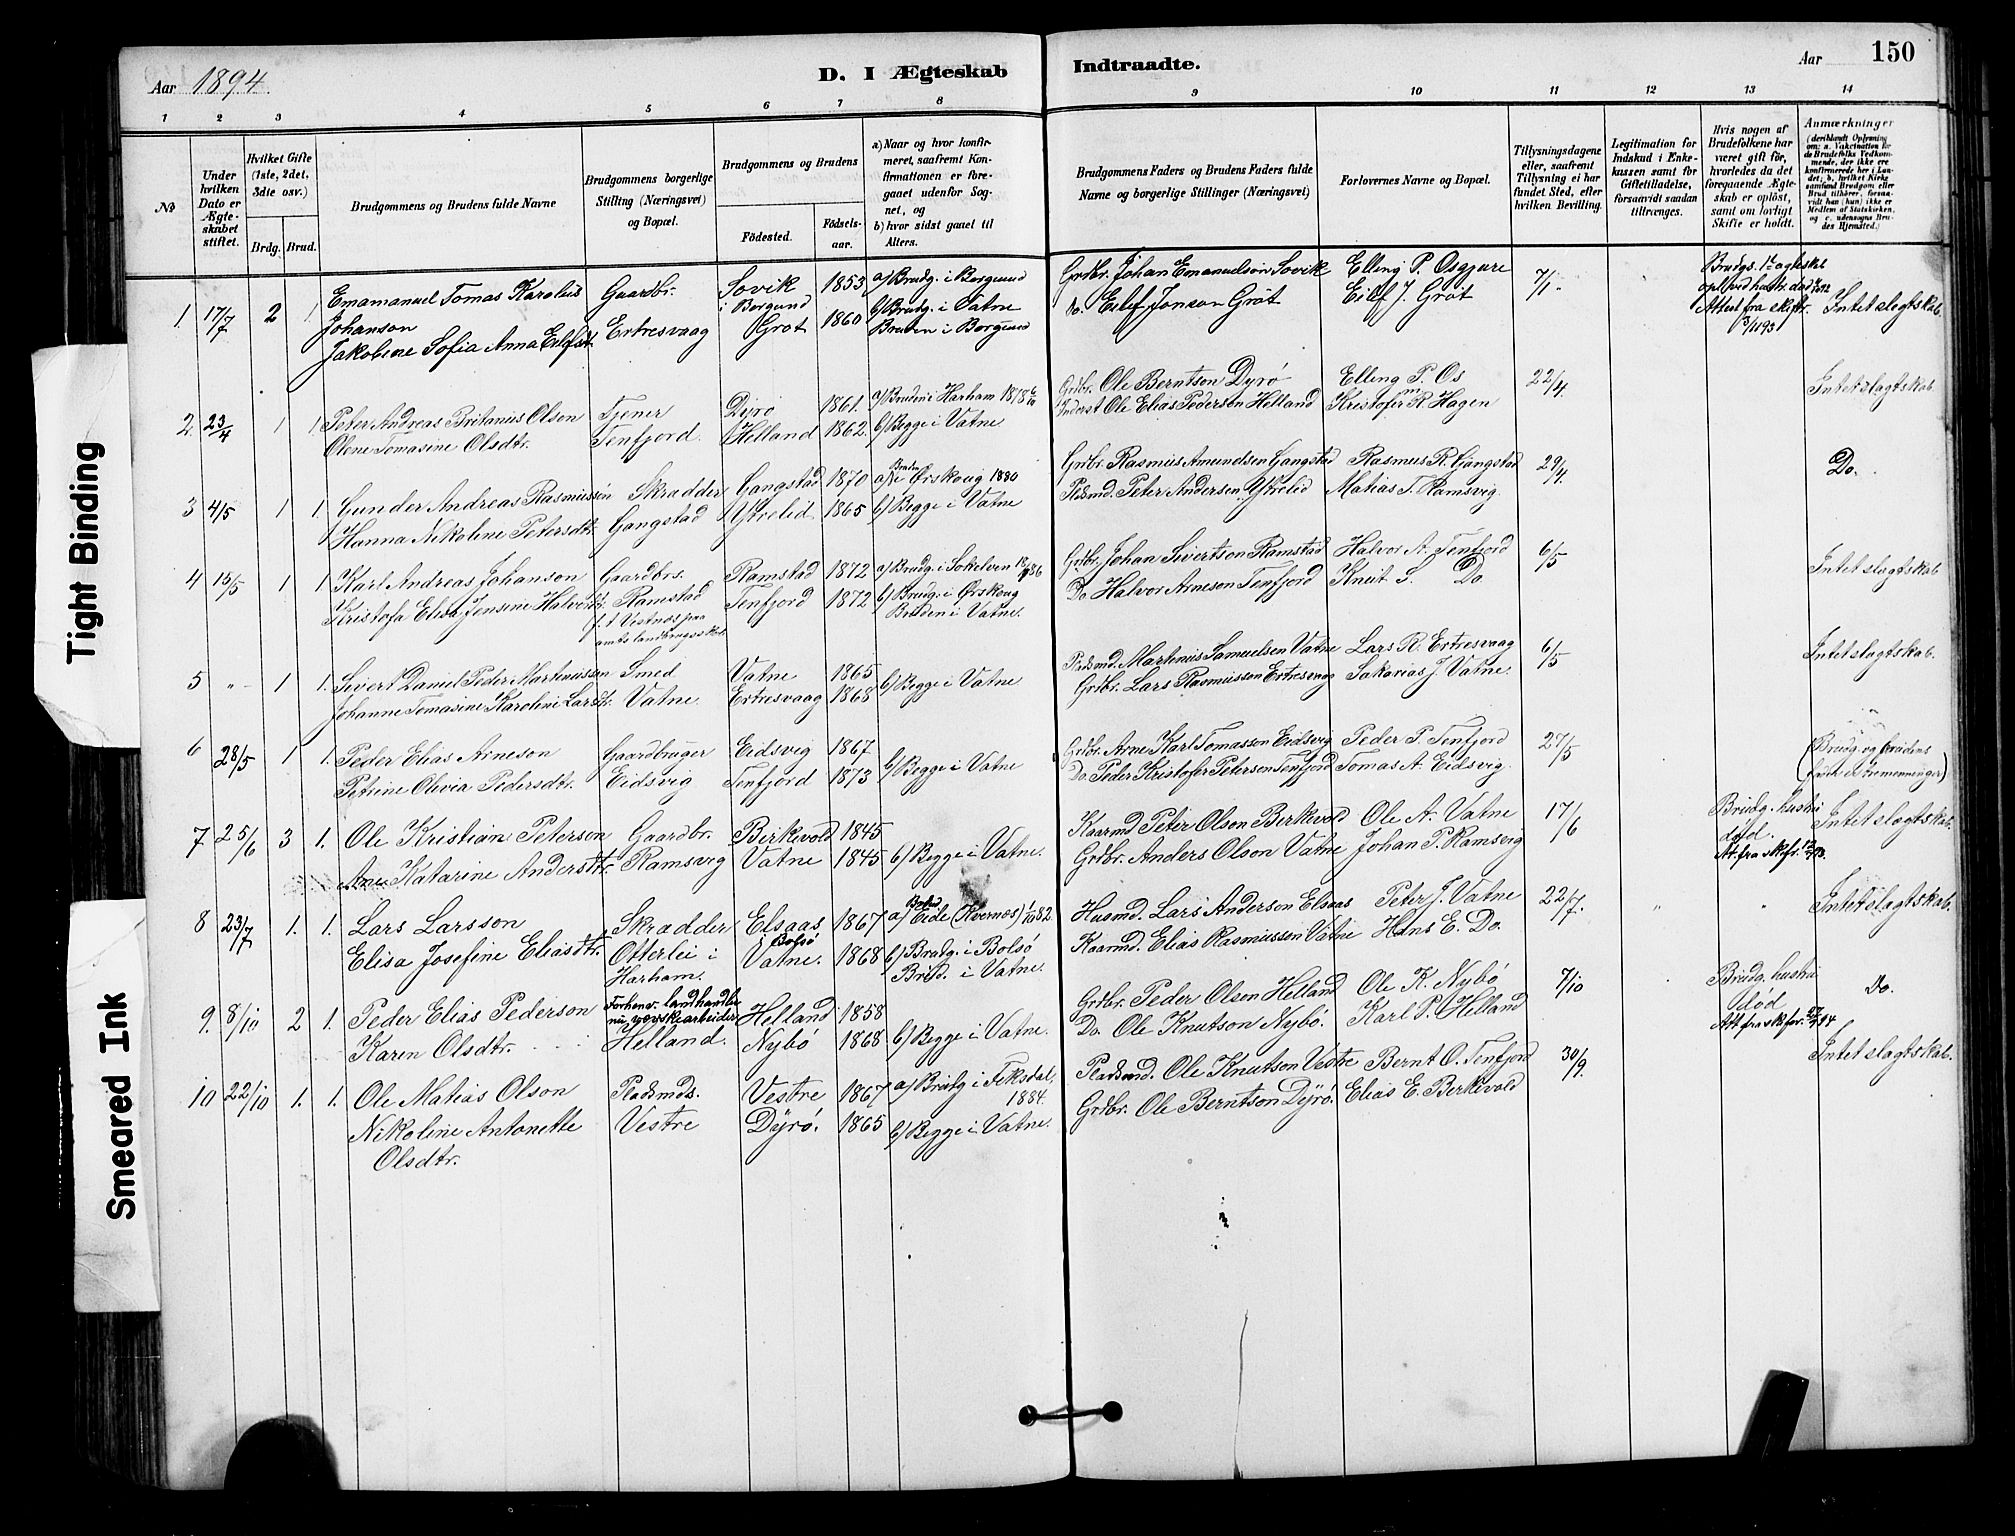 Tight Binding
Smeared Ink
Aar 1894.
D. I Ægteskab Indtraadte.
Aar 150
1 2 3 4 5 6 7 8 9 10 11 12 13 14
No
Under hvilken Dato er Ægteskabet stiftet.
Hvilket Gifte (1ste, 2det, 3die osv.)
Brdg. Brud.
Brudgommens og Brudens fulde Navne
Brudgommens borgerlige Stilling (Næringsvei) og Bopæl.
Brudgommens og Brudens
Födested. Födselsaar.
a) Naar og hvor konfirmeret, saafremt Konfirmationen er foregaaet udenfor Sognet, og
b) hvor sidst gaaet til Alters.
Brudgommens Faders og Brudens Faders fulde Navne og borgerlige Stillinger (Næringsvei)
Forlovernes Navne og Bopæl.
Tillysningsdagene eller, saafremt Tillysning ei har fundet Sted, efter hvilken Bevilling.
Legitimation for Indskud i Enkekassen samt for Giftetilladelse, forsaavidt saadan tiltrænges.
Hvis nogen af Brudefolkene har været gift för, hvorledes da det foregaaende Ægteskab er oplöst, samt om lovligt Skifte er holdt.
Anmærkninger
1. 17/7 2 1
Emamanuel Tomas Karolius Johanson
Jakobine Sofia Anna Eilfsdt.
Gaardbr. Ertresvaag
Sovik i Borgund 1853
Grot 1860
a) Brudg. i Borgund
b) Brudg. i Vatne
Bruden i Borgund
Grdbr. Johan Emanuelson Sovik
Do. Eilef Jonson Gröt
Elling P. Osgjure
Eilef J. Gröt
7/1
Brudgs. 1ste ægtesk. opl. ved hustr. død
Attest fra skiftr.
Intet slagtskab.
2. 23/4 1 1
Peter Andreas Britanius Olson
Olene Tomasine Olsdtr.
Tjener
Tenfjord.
Dyrö 1861.
Helland 1862.
a) Bruden i Harham
b) Begge i Vatne
Grdbr. Ole Berntson Dyrö
Inderst Ole Elias Pederson Helland
Elling P. Os
Kristofer R. Hagen
22/4.
Intet slagtskab.
3 4/5 1 1.
Gunder Andreas Rasmussen
Hanna Nikoline Petersdtr.
Skrædder
Gangstad
Gangstad 1870
Ytrelid. 1865
a) Bruden i Ørskoug 1880
b) Begge i Vatne
Grdbr. Rasmus Amundsen Gangstad
Pladsmd. Peter Andersen Ytrelid
Rasmus R. Gangstad
Matias T. Ramsvig.
29/4.
Do.
4 15/5 1 1
Karl Andreas Johanson
Kristofa Elisa Jensine Halvorsdtr.
Gaardbrs.
Ramstad
f. t. Vestnes paa amts landbrugsskole
Ramstad 1872
Tenfjord 1872
a) Brudg. i Sökelven
b) Brudg. i Ørskoug
Bruden i Vatne.
Grdbr. Johan Sivertson Ramstad
Do. Halvor Arneson Tenfjord
Halvor A. Tenfjord
Knut S. Do.
6/5
Intet slægtskab
5 " 1 1.
Sivert Daniel Peder Martinussen
Johanne Tomasine Karoline Larsdtr.
Smed
Vatne.
Vatne 1865
Ertresvaag 1868
b) Begge i Vatne
Pladsmd. Martinus Samuelsen Vatne
Grdbr. Lars Rasmusson Ertresvaag
Lars R. Ertresvaag
Sakarias J. Vatne.
6/5
Intet slagtskab.
6 28/5 1 1.
Peder Elias Arneson
Petrine Olivia Pedersdtr.
Gaardbruger
Eidsvig
Eidsvig 1867
Tenfjord 1873
b) Begge i Vatne
Grdbr. Arne Karl Tomasson Eidsvig
Do. Peder Kristofer Petersen Tenfjord
Peder P. Tenfjord
Tomas A. Eidsvig.
27/5
(Brudg. og brudens fædre er tremenninger)
7. 25/6 3 1.
Ole Kristian Peterson
Ane Katarine Andersdtr.
Gaardbr.
Ramsvig
Birkevold 1845
Vatne 1845
b) Begge i Vatne.
Kaarmd Peter Olson Berkevold
Grdbr. Anders Olson Vatne
Ole A. Vatne
Johan P. Ramsvig
17/6
Brudg. hustru död.
At. fra skfr.
Intet slagtskab.
8 23/7 1. 1.
Lars Larsson
Elisa Josefine Eliasdtr.
Skrædder
Otterlei i Harham.
Elsaas i Bolsö 1867
Vatne. 1868
a) Eide (Kvernæs) 1/10 82.
b) Brudg. i Bolsö
Brud. i Vatne.
Husmd. Lars Anderson Elsaas
Kaarmd. Elias Rasmussen Vatne
Peter J. Vatne
Hans E. Do.
22/7.
Intet slægtskab.
9. 8/10 2 1.
Peder Elias Pederson
Karen Olsdtr.
Forhenv. landhandler nu verkarbeider
Helland.
Helland 1858
Nybö 1868
b) Begge i Vatne.
Grdbr. Peder Olsen Helland
Do. Ole Knutson Nybö.
Ole K. Nybö
Karl P. Helland
7/10
Brudg. hustru död
Att. fra skfr.
Do.
10 22/10 1. 1.
Ole Matias Olson
Nikoline Antonette Olsdtr.
Pladsmds.
Vestre
Vestre 1867
Dyrö. 1865
a) Brudg i Fiksdal, 1884.
b) Begge i Vatne.
Pladsmd. Ole Knutson Vestre
Grdbr. Ole Berntson Dyrö.
Bernt O. Tenfjord
Elias E. Berkevold
30/9.
Intet slagtskab.